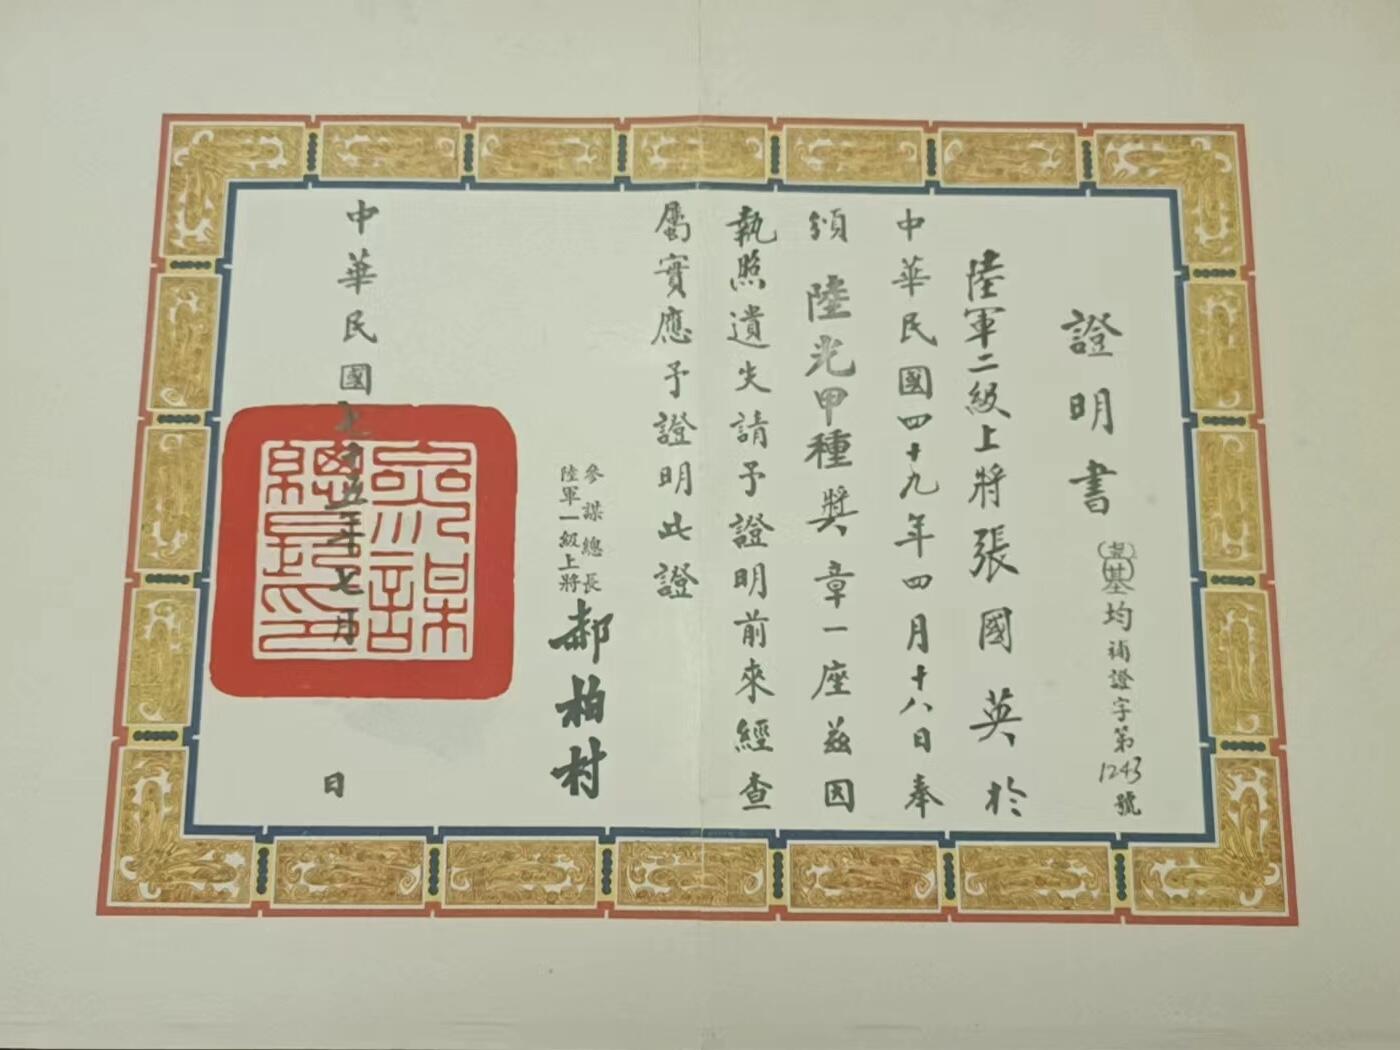 證明書
均補證字第1243號
陸軍二級上將張國英於
中華民國四十九年四月十八日奉
頒陸光甲種獎章一座茲因
執照遺失請予證明前來經查
屬實應予證明此證
參謀總長
陸軍一級上將
郝柏村
中華民國七十五年七月 日
參謀總長之印